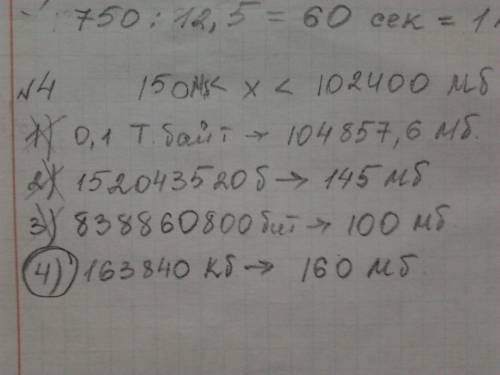 750 : 12,5 = 60 сек = 1
№4 150Мб < x < 102400 Мб
1) 0,1 Т. байт → 104857,6 Мб.
2) 152043520 б → 145 Мб
3) 838860800 бит → 100 Мб
4) 163840 Кб → 160 Мб